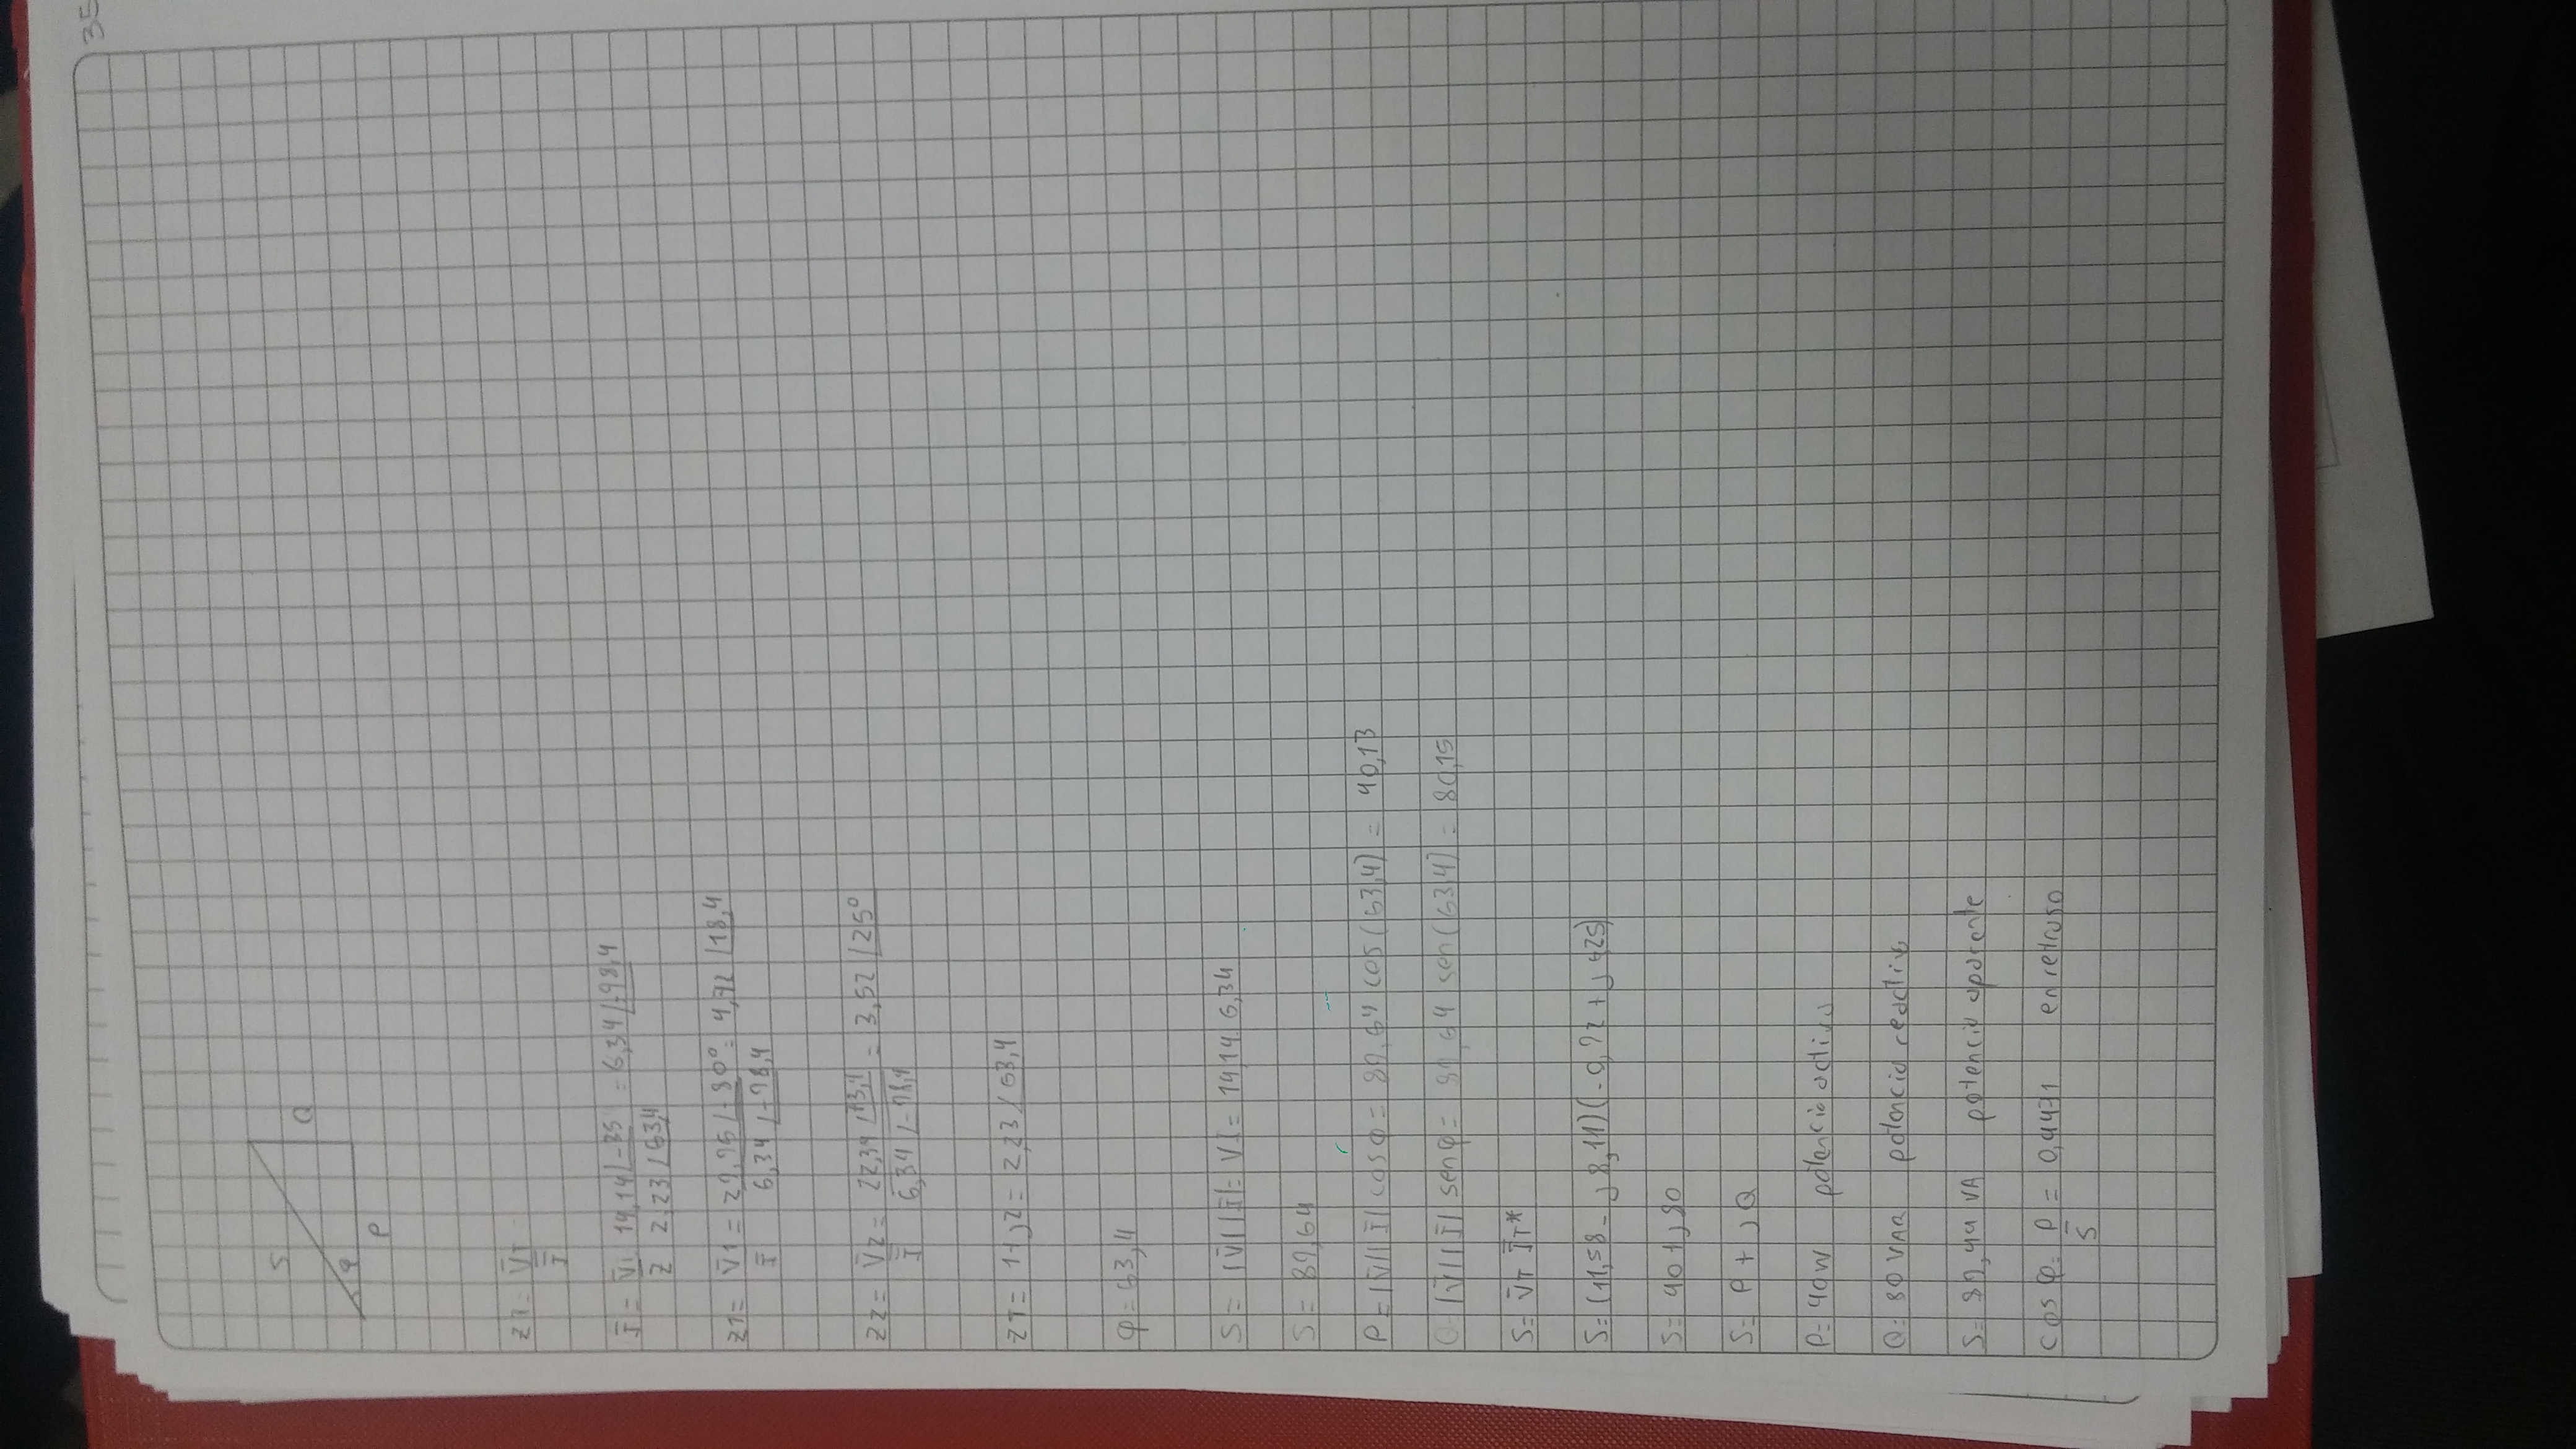 35
S
Q
φ
P
ZT = V̄T
Ī
Ī = V̄T 14,14∠-35 = 6,34∠-98,4
Z 2,23∠63,4
Z1 = V̄1 = 29,95∠-80° = 4,72∠18,4
Ī 6,34∠-98,4
Z2 = V̄2 = 22,34 = 3,52∠25°
Ī 6,34∠-98,4
ZT = 1+j2 = 2,23∠63,4
φ = 63,4
S = |V̄||Ī| = VI = 14,14 6,34
S = 89,64
P = |V̄||Ī| cos φ = 89,64 cos(63,4) = 40,13
Q = |V̄||Ī| sen φ = 89,64 sen(63,4) = 80,15
S = V̄T ĪT*
S = (11,58 - j 8,11)(-0,92 + j 6,25)
S = 40 + j 80
S = P + j Q
P = 40 W potencia activa
Q = 80 VAR potencia reactiva
S = 89,44 VA potencia aparente
cos φ = P = 0,4471 en retraso
S